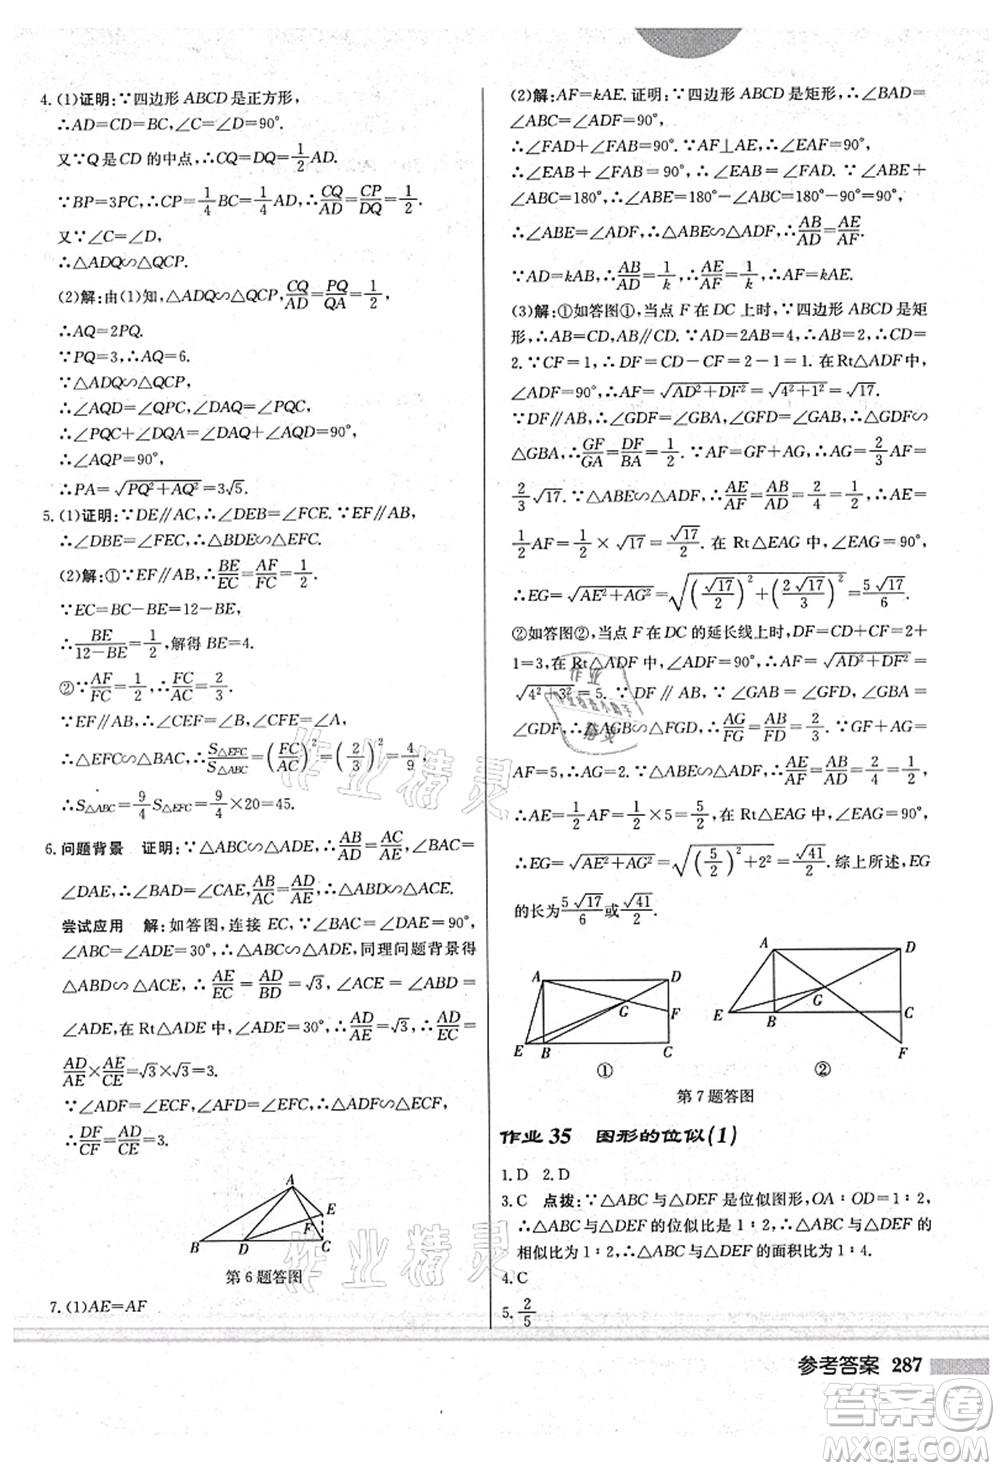 4. (1)证明:∵四边形 ABCD 是正方形,
∴AD=CD=BC,∠C=∠D=90°.
又∵Q 是 CD 的中点,∴CQ=DQ=1/2 AD.
∵BP=3PC,∴CP=1/4 BC=1/4 AD,∴CQ/AD=CP/DQ=1/2.
又∵∠C=∠D,
∴△ADQ∽△QCP.
(2)解:由(1)知,△ADQ∽△QCP,CQ/AD=PQ/QA=1/2,
∴AQ=2PQ.
∵PQ=3,∴AQ=6.
∵△ADQ∽△QCP,
∴∠AQD=∠QPC,∠DAQ=∠PQC,
∴∠PQC+∠DQA=∠DAQ+∠AQD=90°,
∴∠AQP=90°,
∴PA=√(PQ²+AQ²)=3√5.
5. (1)证明:∵DE∥AC,∴∠DEB=∠FCE.∵EF∥AB,
∴∠DBE=∠FEC,∴△BDE∽△EFC.
(2)解:①∵EF∥AB,∴BE/EC=AF/FC=1/2.
∵EC=BC-BE=12-BE,
∴BE/(12-BE)=1/2,解得 BE=4.
②∵AF/FC=1/2,∴FC/AC=2/3.
∵EF∥AB,∴∠CEF=∠B,∠CFE=∠A,
∴△EFC∽△BAC,∴S△EFC/S△ABC=(FC/AC)²=(2/3)²=4/9,
∴S△ABC=9/4 S△EFC=9/4×20=45.
6. 问题背景 证明:∵△ABC∽△ADE,∴AB/AD=AC/AE,∠BAC=
∠DAE,∴∠BAD=∠CAE,AB/AC=AD/AE,∴△ABD∽△ACE.
尝试应用 解:如答图,连接 EC,∵∠BAC=∠DAE=90°,
∠ABC=∠ADE=30°,∴△ABC∽△ADE,同理问题背景得
△ABD∽△ACE,∴AE/EC=AD/BD=√3,∴∠ACE=∠ABD=
∠ADE,在 Rt△ADE 中,∠ADE=30°,∴AD/AE=√3,∴
AD/AE×AE/CE=√3×√3=3.
∵∠ADF=∠ECF,∠AFD=∠EFC,∴△ADF∽△ECF,
∴DF/CF=AD/CE=3.
A
E
F
B
D
C
第 6 题答图
7. (1)AE=AF
(2)解:AF=kAE.证明:∵四边形 ABCD 是矩形,∴∠BAD=
∠ABC=∠ADF=90°,
∴∠FAD+∠FAB=90°.∵AF⊥AE,∴∠EAF=90°,
∴∠EAB+∠FAB=90°,∴∠EAB=∠FAD.∵∠ABE+
∠ABC=180°,∴∠ABE=180°-∠ABC=180°-90°=90°,
∴∠ABE=∠ADF,∴△ABE∽△ADF,∴AB/AD=AE/AF.
∵AD=kAB,∴AB/AD=1/k,∴AE/AF=1/k,∴AF=kAE.
(3)解:①如答图①,当点 F 在 DC 上时,∵四边形 ABCD 是矩
形,∴AB=CD,AB∥CD.∵AD=2AB=4,∴AB=2,∴CD=
2.∵CF=1,∴DF=CD-CF=2-1=1.在 Rt△ADF 中,
∠ADF=90°,∴AF=√(AD²+DF²)=√(4²+1²)=√17.
∵DF∥AB,∴∠GDF=∠GBA,∠GFD=∠GAB,∴△GDF∽
△GBA,∴GF/GA=DF/BA=1/2.∵AF=GF+AG,∴AG=2/3 AF=
2/3 √17.∵△ABE∽△ADF,∴AE/AF=AB/AD=2/4=1/2,∴AE=
1/2 AF=1/2×√17=√17/2.在 Rt△EAG 中,∠EAG=90°,
∴EG=√(AE²+AG²)=√((√17/2)²+(2√17/3)²)=5√17/6.
②如答图②,当点 F 在 DC 的延长线上时,DF=CD+CF=2+
1=3.在 Rt△ADF 中,∠ADF=90°,∴AF=√(AD²+DF²)=
√(4²+3²)=5.∵DF∥AB,∴∠GAB=∠GFD,∠GBA=
∠GDF,∴△AGB∽△FGD,∴AG/FG=AB/FD=2/3.∵GF+AG=
AF=5,∴AG=2.∵△ABE∽△ADF,∴AE/AF=AB/AD=2/4=1/2,
∴AE=1/2 AF=1/2×5=5/2.在 Rt△EAG 中,∠EAG=90°,
∴EG=√(AE²+AG²)=√((5/2)²+2²)=√41/2.综上所述,EG
的长为5√17/6或√41/2.
A
D
G
F
E
B
C
①
A
D
G
E
B
C
F
②
第 7 题答图
作业 35 图形的位似(1)
1. D 2. D
3. C 点拨:∵△ABC 与△DEF 是位似图形,OA∶OD=1∶2,
∴△ABC 与△DEF 的位似比是 1∶2,∴△ABC 与△DEF 的
相似比为 1∶2,∴△ABC 与△DEF 的面积比为 1∶4.
4. C
5. 2/5
参考答案 287
作业精灵
作业精灵
答案圈
MXQE.COM